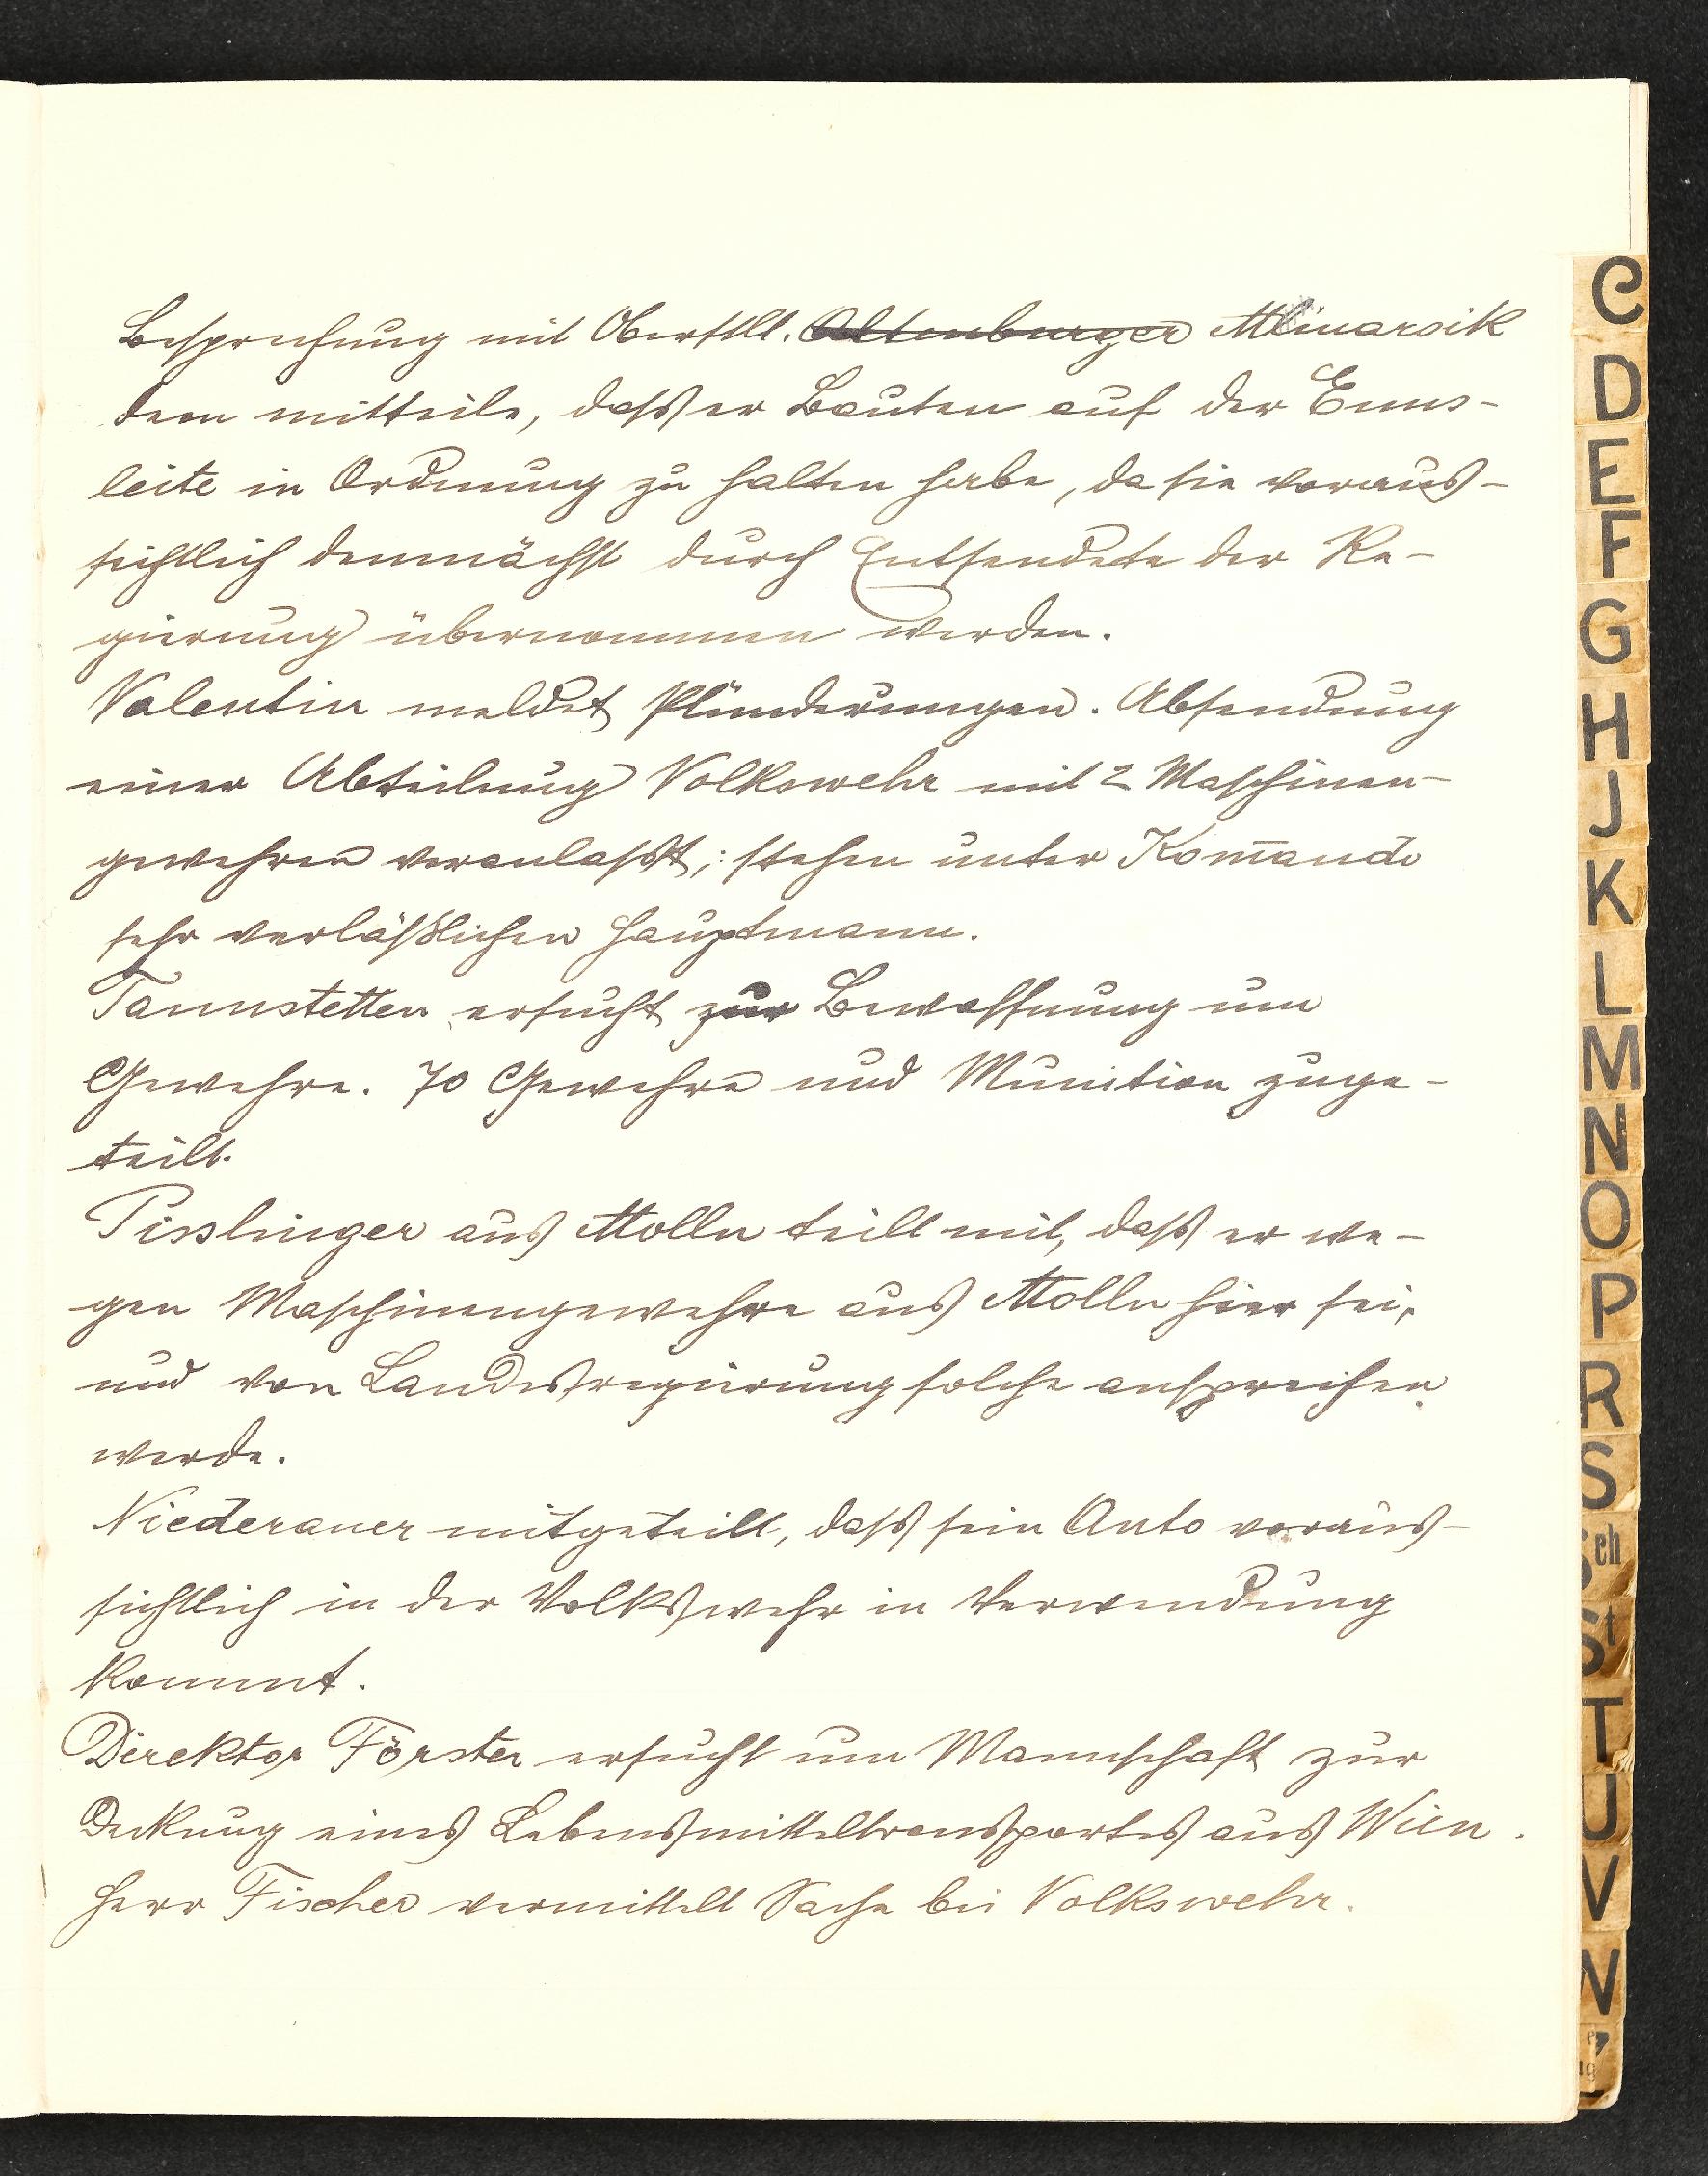 Besprechung mit Oberstlt. Altenburger Mlinarsik
dem mitteile, dass er Bauten auf der Enns-
leite in Ordnung zu halten habe, da sie voraus-
sichtlich demnächst durch Entsendete der Re-
gierung übernommen werden.
Valentin meldet Plünderungen. Absendung
einer Abteilung Volkswehr mit 2 Maschinen-
gewehren veranlasst; stehen unter Kom̄ando
sehr verläßlichen Hauptmann.
Tannstetten ersucht zur Bewaffnung um
Gewehre. 70 Gewehre und Munition zuge-
teilt.
Pisslinger aus Molln teilt mit, dass er we-
gen Maschinengewehre aus Molln hier sei,
und von Landesregierung solche ansprechen
werde.
Niederauer mitgeteilt, dass sein Auto voraus-
sichtlich in der Volkswehr in Verwendung
kommt.
Direktor Förster ersucht um Mannschaft zur
Deckung eines Lebensmitteltransportes aus Wien.
Herr Fischer vermittelt Sache bei Volkswehr.
C
D
E
F
G
H
J
K
L
M
N
O
P
R
S
Sch
St
T
U
V
W